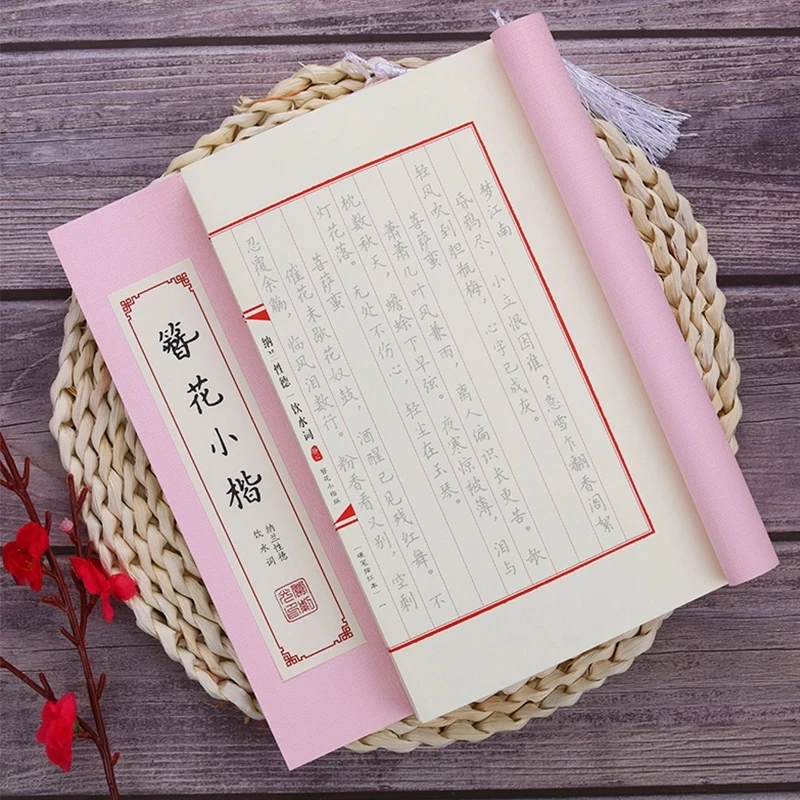 梦江南
昏鸦尽，小立恨因谁？急雪乍翻香阁絮，
轻风吹到胆瓶梅，心字已成灰。
菩萨蛮
萧萧几叶风兼雨，离人偏识长更苦。欹
枕数秋天，蟾蜍下早弦。夜寒惊被薄，泪与
灯花落。无处不伤心，轻尘在玉琴。
菩萨蛮
催花未歇花奴鼓，酒醒已见残红舞。不
忍覆余觞，临风泪数行。粉香看又别，空剩
纳兰性德|饮水词 簪花小楷版 硬笔描红本 一
簪花小楷
纳兰性德
饮水词